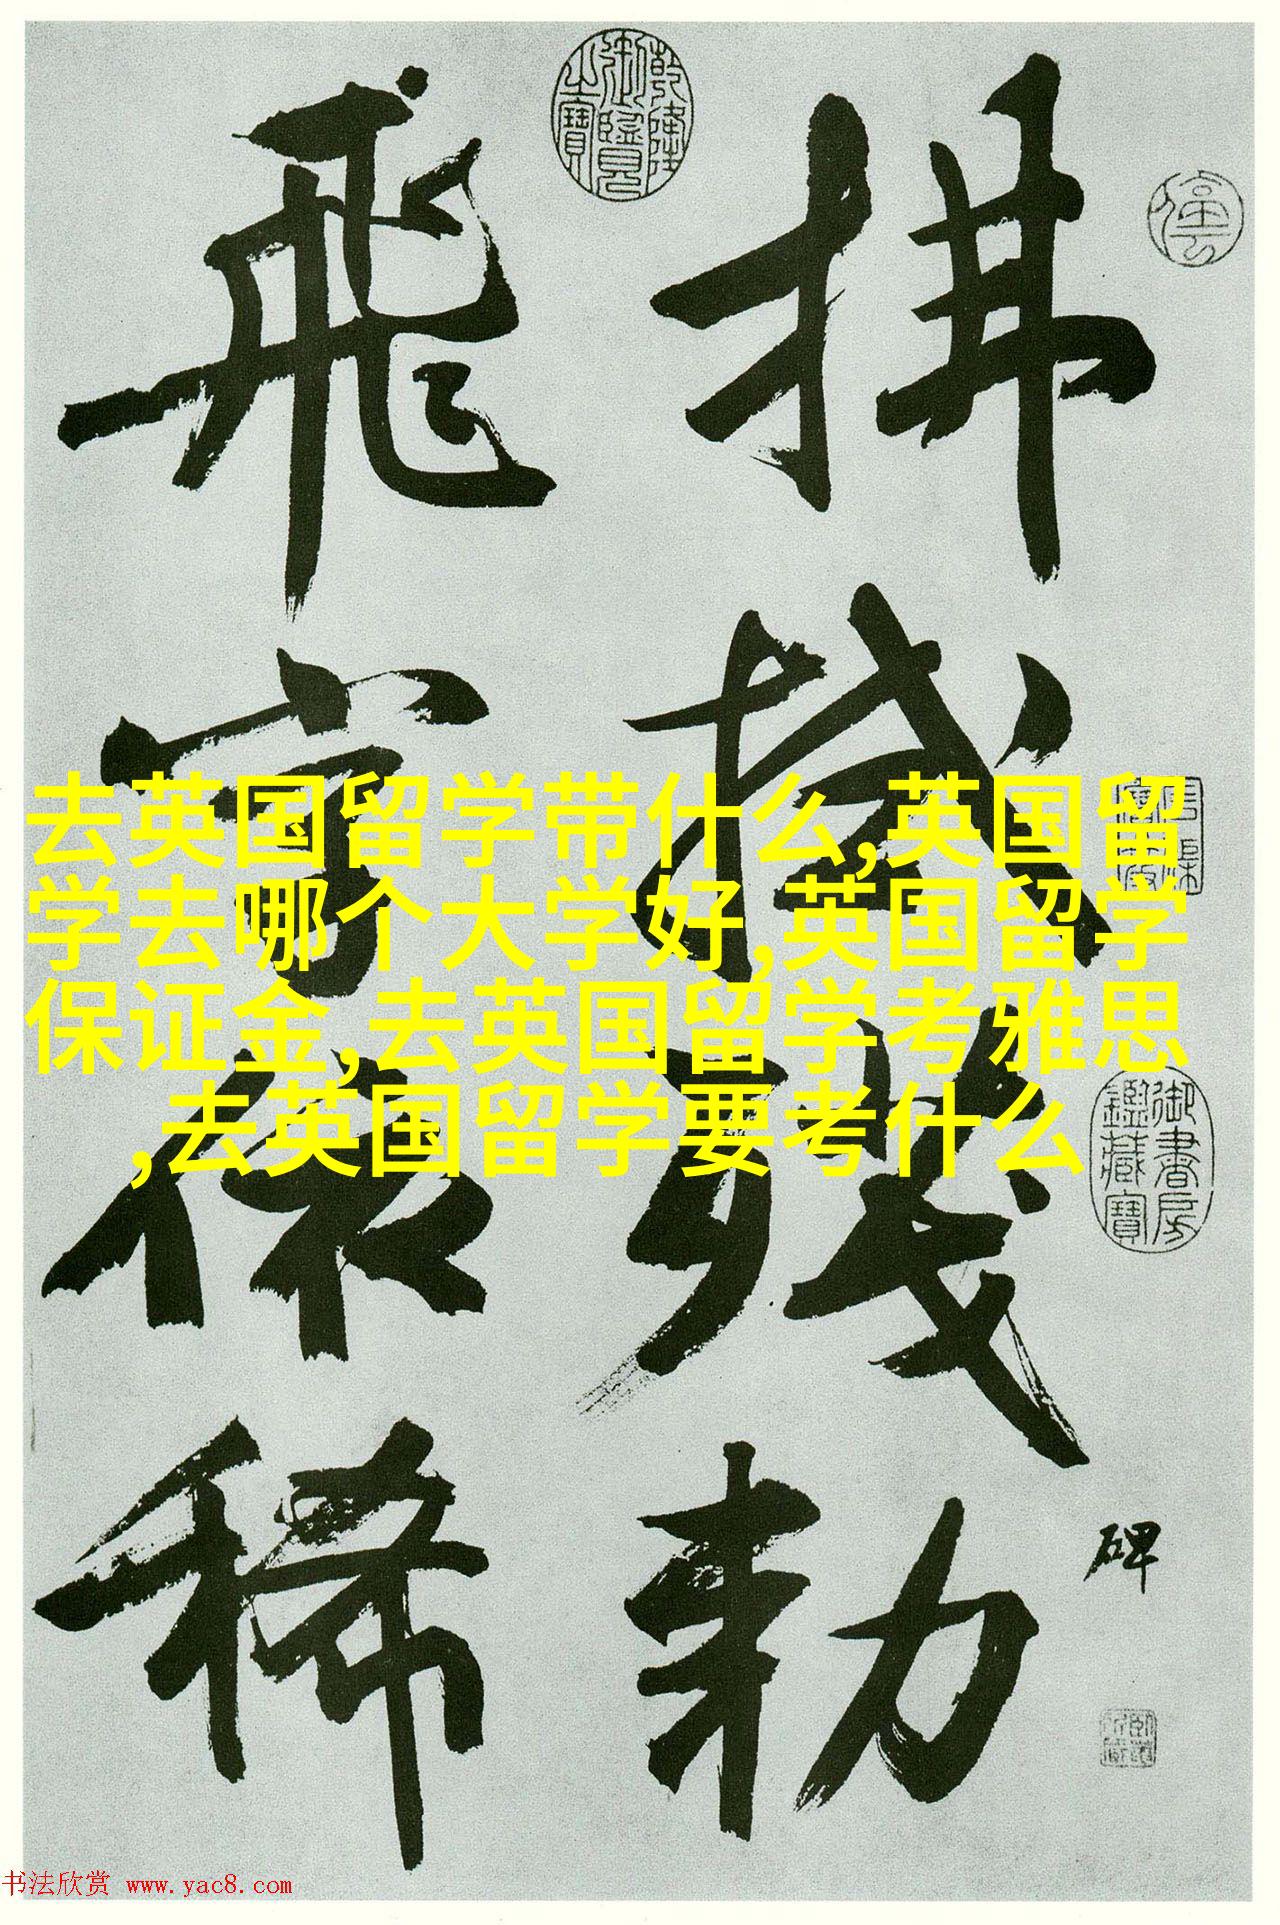 乾隆御覽之寶
停雲
拂拭残勅
碑
飛字依稀
御書房鑑藏寶
去英国留学带什么,英国留
学去哪个大学好,英国留学
保证金,去英国留学考雅思
,去英国留学要考什么
书法欣赏 www.yac8.com